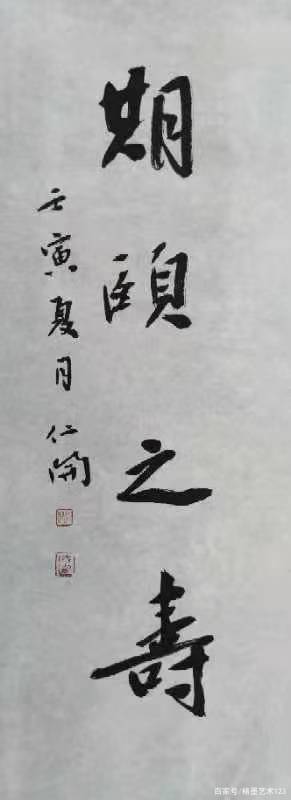 期頤之壽
壬寅夏月仁開
百家号/格墨艺术123